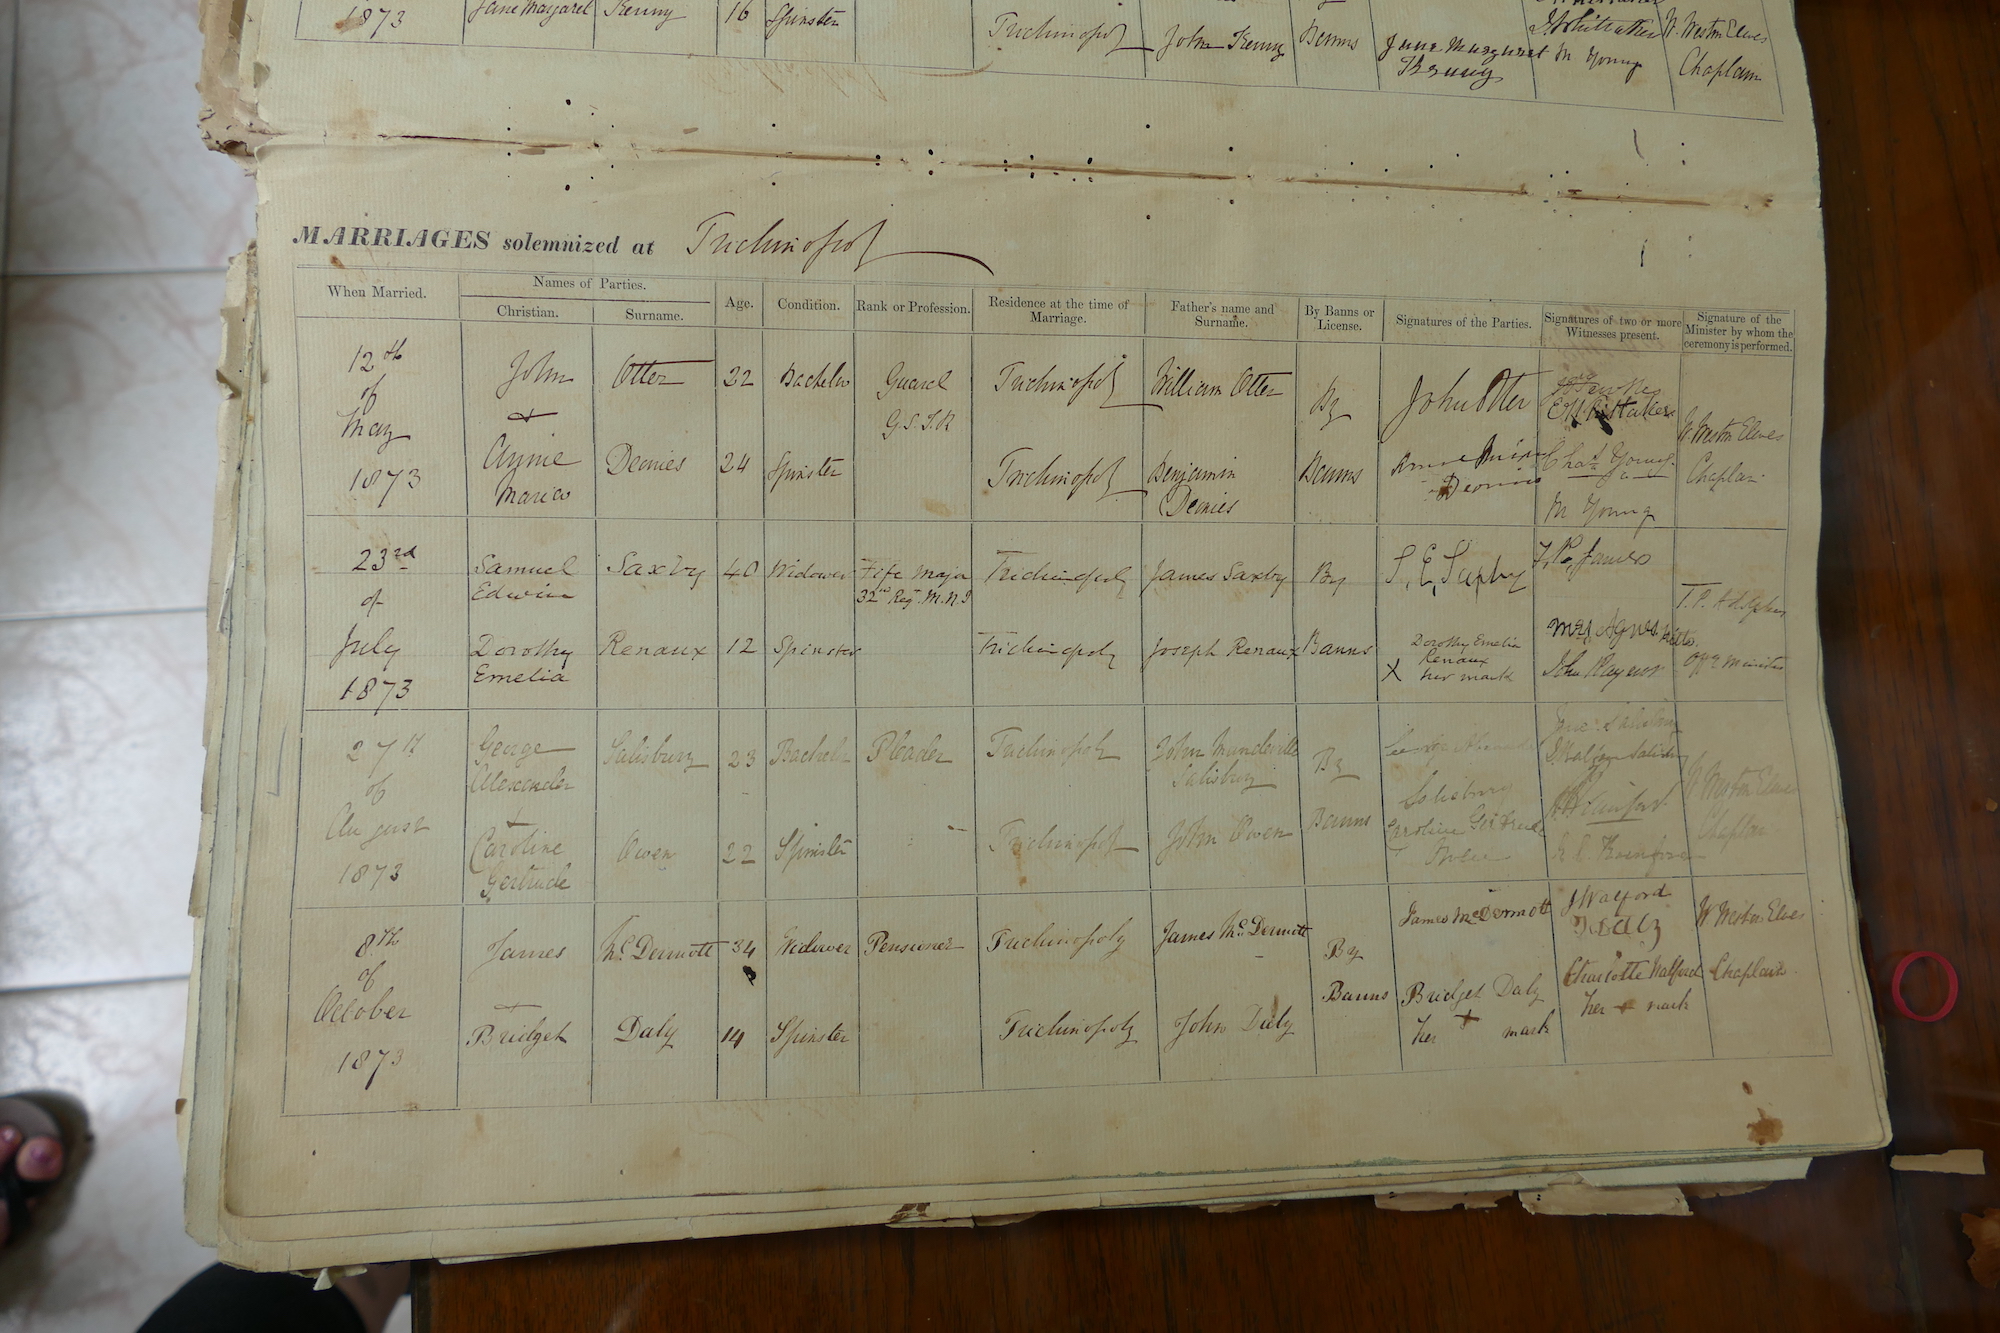 1873 Jane Margaret Kenny 16 Spinster Trichinopoly John Kenny Banns Jane Margaret Kenny M Young W. Weston Elwes Chaplain
MARRIAGES solemnized at Trichinopoly
When Married. Names of Parties. Age. Condition. Rank or Profession. Residence at the time of Marriage. Father's name and Surname. By Banns or License. Signatures of the Parties. Signatures of two or more Witnesses present. Signature of the Minister by whom the ceremony is performed.
Christian. Surname.
12th of May 1873
John Otter 22 Bachelor Guard G.S.I.R Trichinopoly William Otter By Banns John Otter
+
Annie Maria Deonies 24 Spinster Trichinopoly Benjamin Deonies
Chas Young
M Young
W. Weston Elwes
Chaplain
23rd of July 1873
Samuel Edwin Saxby 40 Widower Fife Major 32nd Regt. M.N.I Trichinopoly James Saxby By Banns S. E. Saxby
Dorothy Emelia Renaux 12 Spinster Trichinopoly Joseph Renaux Dorothy Emelia Renaux
X her mark
Mrs Agnes
John
T. P. Adolphus
Offg Minister
27th of August 1873
George Alexander Salisbury 23 Bachelor Pleader Trichinopoly John Mandeville Salisbury By Banns
Salisbury
+
Caroline Gertrude Owen 22 Spinster Trichinopoly John Owen Caroline Gertrude Owen
W Weston Elwes
Chaplain
8th of October 1873
James McDermott 34 Widower Pensioner Trichinopoly James McDermott By Banns James McDermott
+
Bridget Daly 14 Spinster Trichinopoly John Daly Bridget Daly
her + mark
J Walford
Charlotte Walford
her + mark
W Weston Elwes
Chaplain